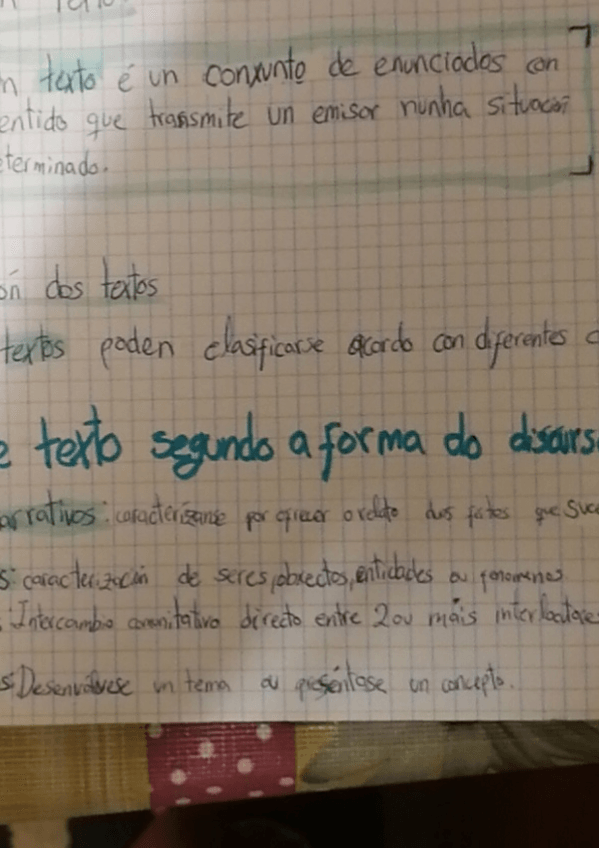 n texto é un conxunto de enunciados con
entido que transmite un emisor nunha situación
eterminado.
ón dos textos
textos poden clasificarse acordo con diferentes c
e texto segundo a forma do discurs
arrativos: caracterízanse por ofrecer o relato dos feitos que suce
s: caracterización de seres, obxectos, entidades ou fenomenos
: Intercambio comunitativo directo entre 2 ou máis interlocutore
s: Desenvólvese un tema ou preséntase un concepto.